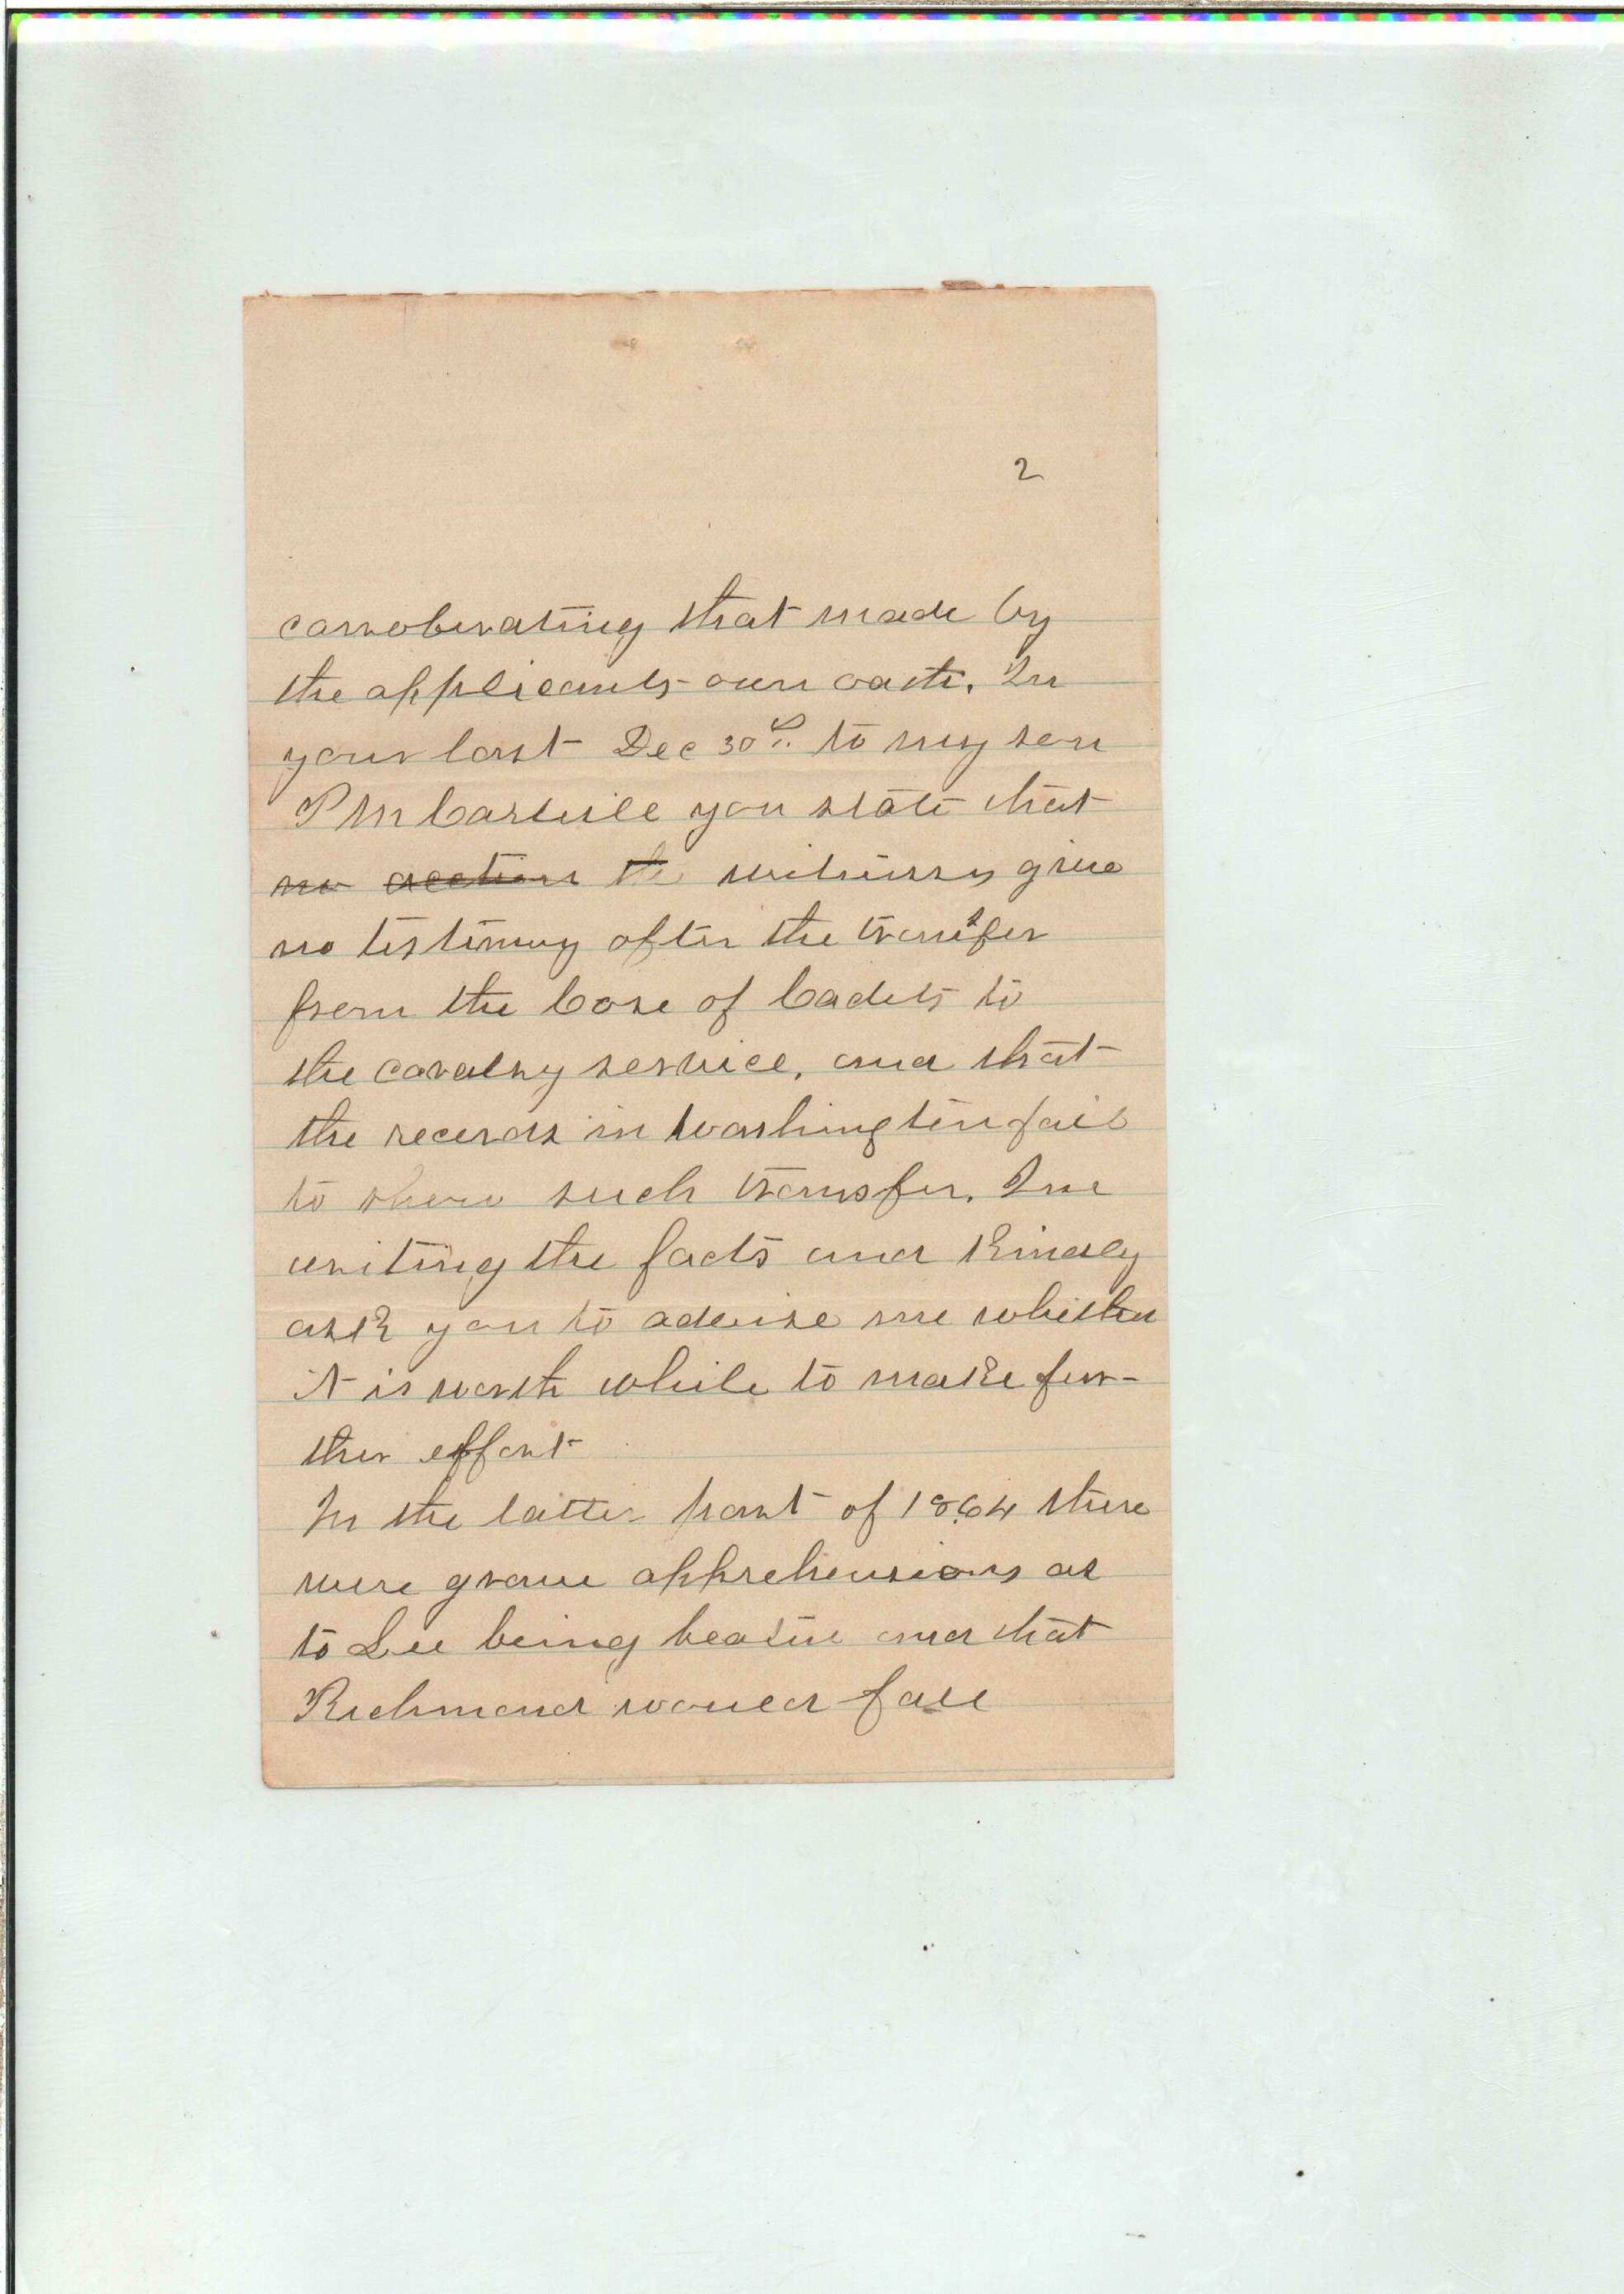 2
corroberating that made by
the applicants own oath. In
your last Dec 30th to my son
P M Carlile you state that
no action the witnesses give
no testimony after the transfer
from the Core of Cadets to
the cavalry service, and that
the records in Washington fail
to show such transfer. I'm
writing the facts and kindly
ask you to advise me whether
it is worth while to make fur-
ther effort
In the latter part of 1864 there
were grave apprehensions as
to Lee being beaten and that
Richmond would fall